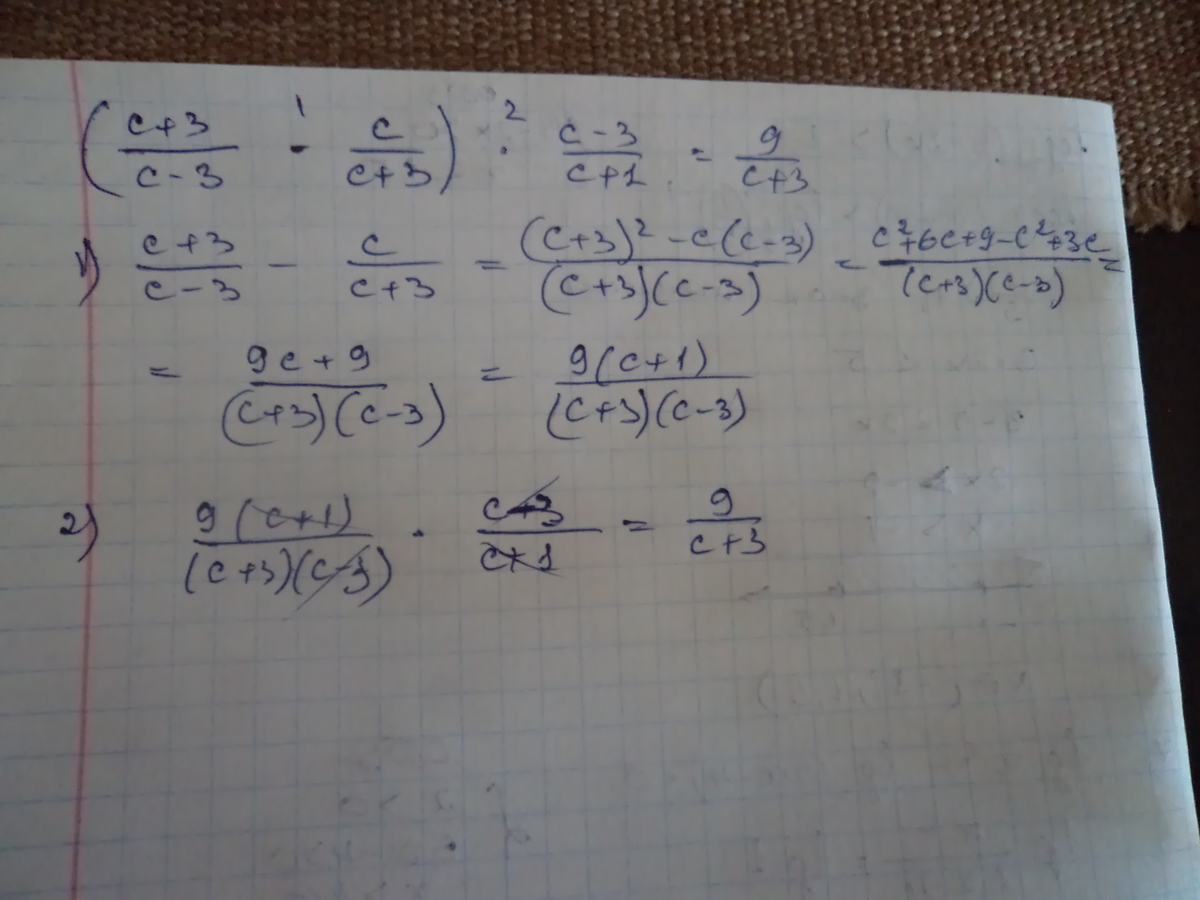 ( (c+3)/(c-3) -¹ c/(c+3) ) ·² (c-3)/(c+1) = 9/(c+3)
1) (c+3)/(c-3) - c/(c+3) = ((c+3)² - c(c-3))/((c+3)(c-3)) = (c²+6c+9-c²+3c)/((c+3)(c-3)) =
= (9c+9)/((c+3)(c-3)) = 9(c+1)/((c+3)(c-3))
2) 9(c+1)/((c+3)(c-3)) · (c-3)/(c+1) = 9/(c+3)